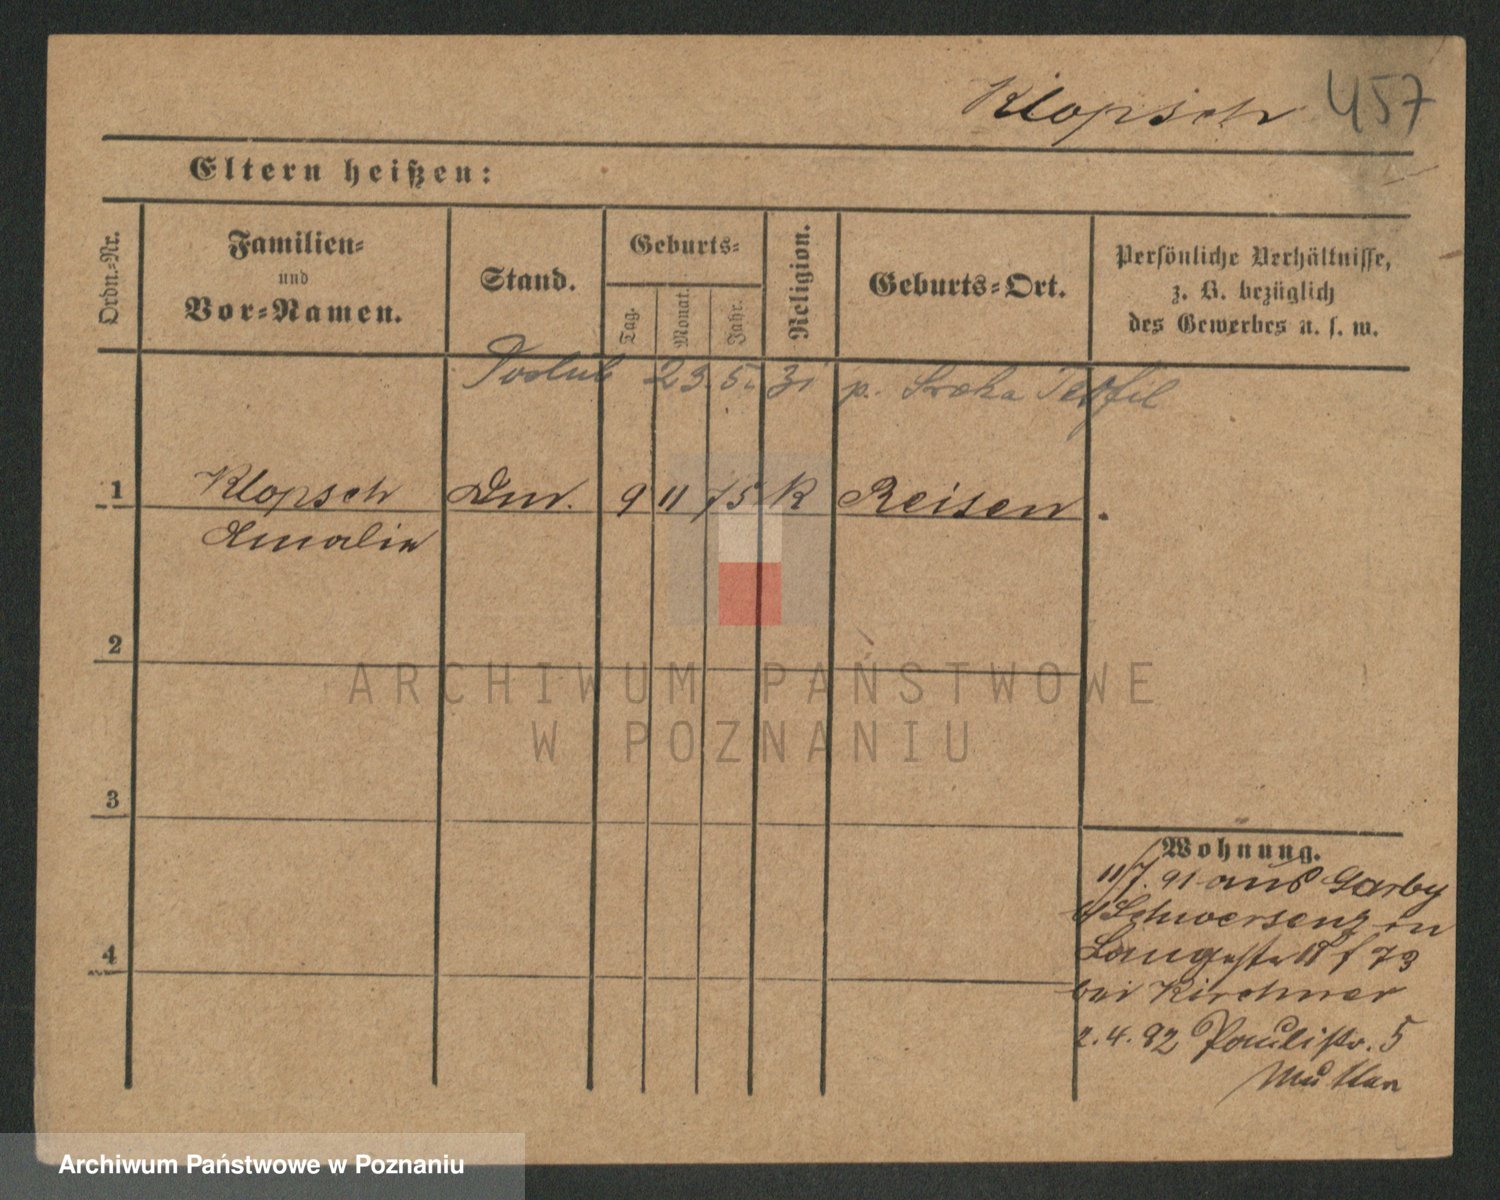 Klopsch 457
Eltern heißen:
Ordn.-Nr.
Familien-
und
Vor-Namen.
Stand.
Geburts-
Tag.
Monat.
Jahr.
Religion.
Geburts-Ort.
Persönliche Verhältnisse,
z. B. bezüglich
des Gewerbes u. s. w.
23 5. 31 p. Teofil
1 Klopsch 9 11 75 K Reisen
Amalie
2
3
4
Wohnung.
11/7. 91 aus Garby
Schwersenz in
73
bei Kirchner
2. 4. 92 Paulistr. 5
ARCHIWUM PAŃSTWOWE
W POZNANIU
Archiwum Państwowe w Poznaniu